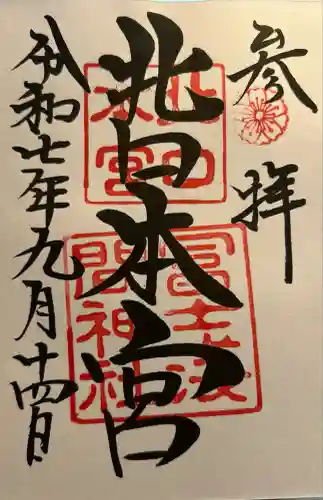 参拝
北口本宮
令和七年九月廿四日
北口
本宮
冨士浅
間神社